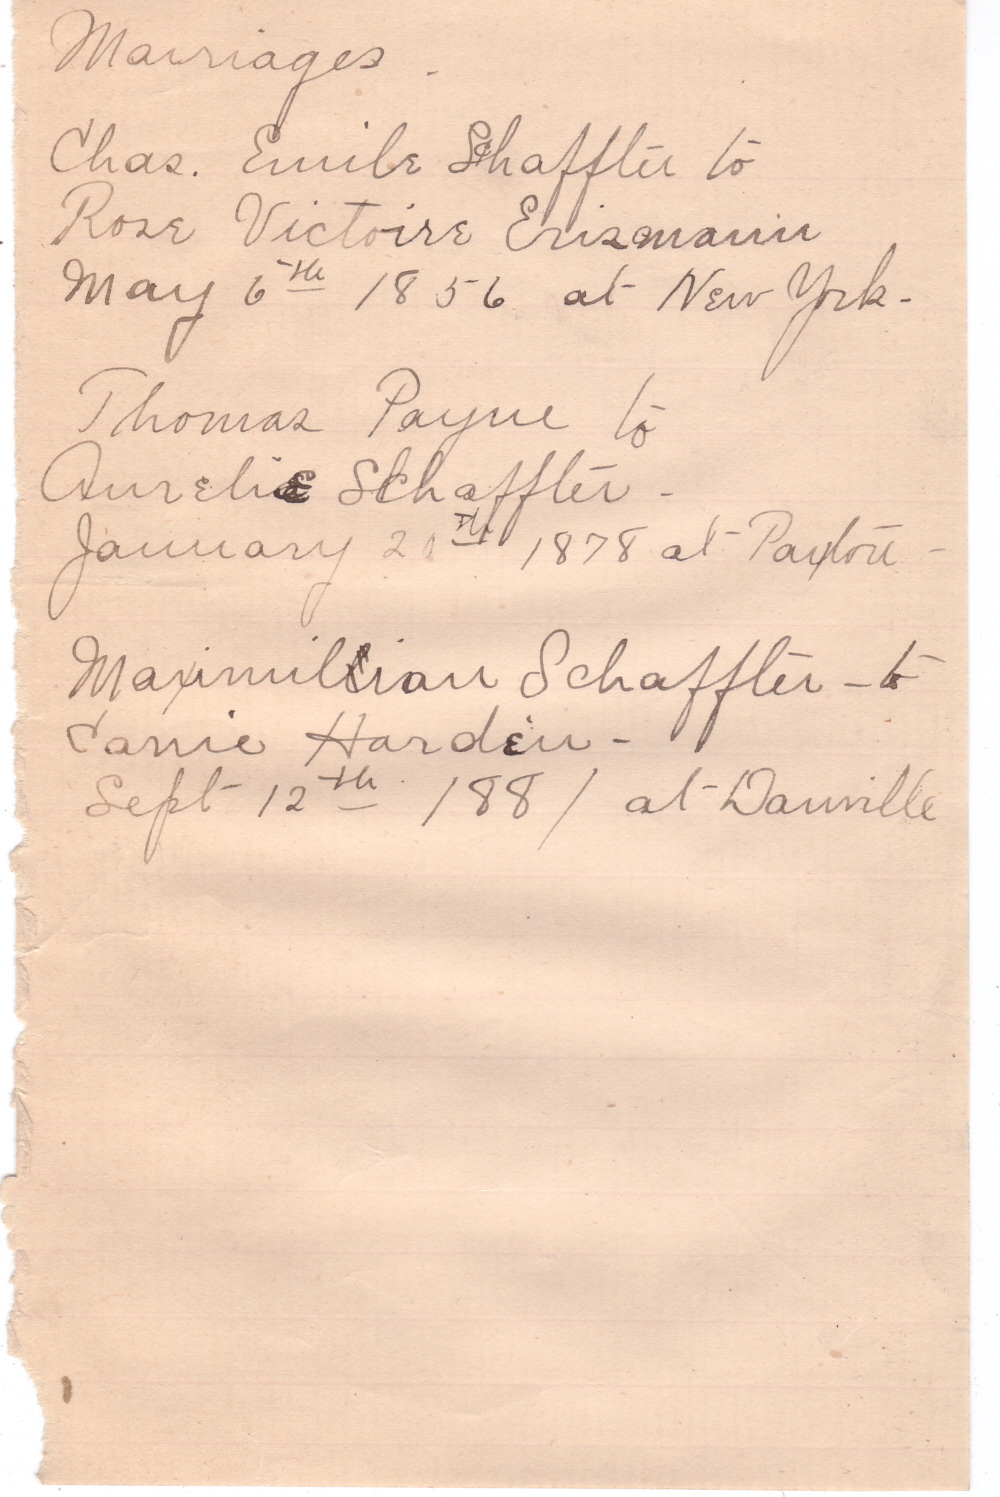 Marriages.
Chas. Emile Schaffter to
Rose Victoire Erismann
May 6th 1856 at New York-
Thomas Payne to
Aurelie Schaffter -
January 1878 at Paxton -
Maximilian Schaffter - to
Carrie Harden -
Sept 12th 1881 at Danville